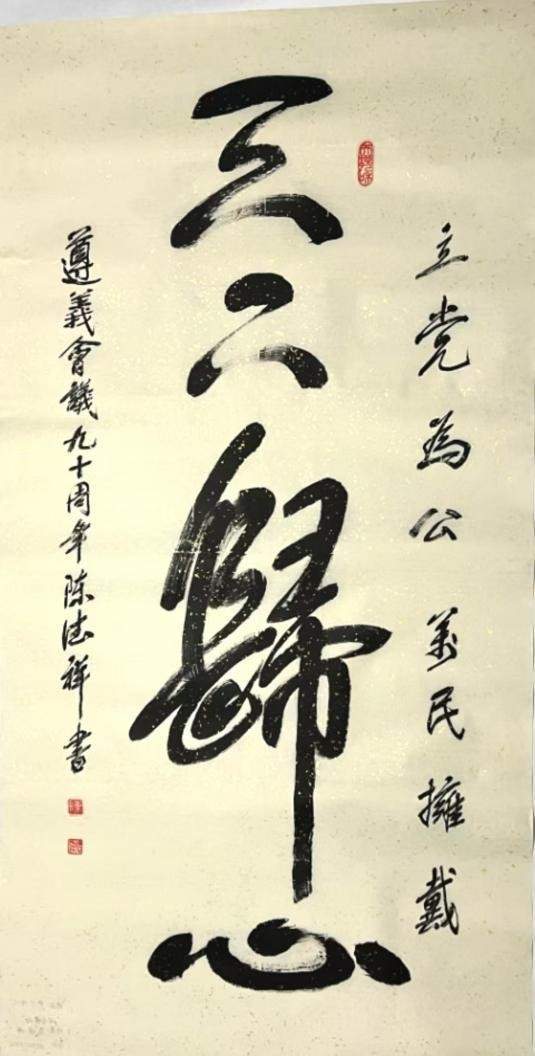 立党為公 萬民擁戴
天下歸心
遵義會議九十周年 陈德祥書